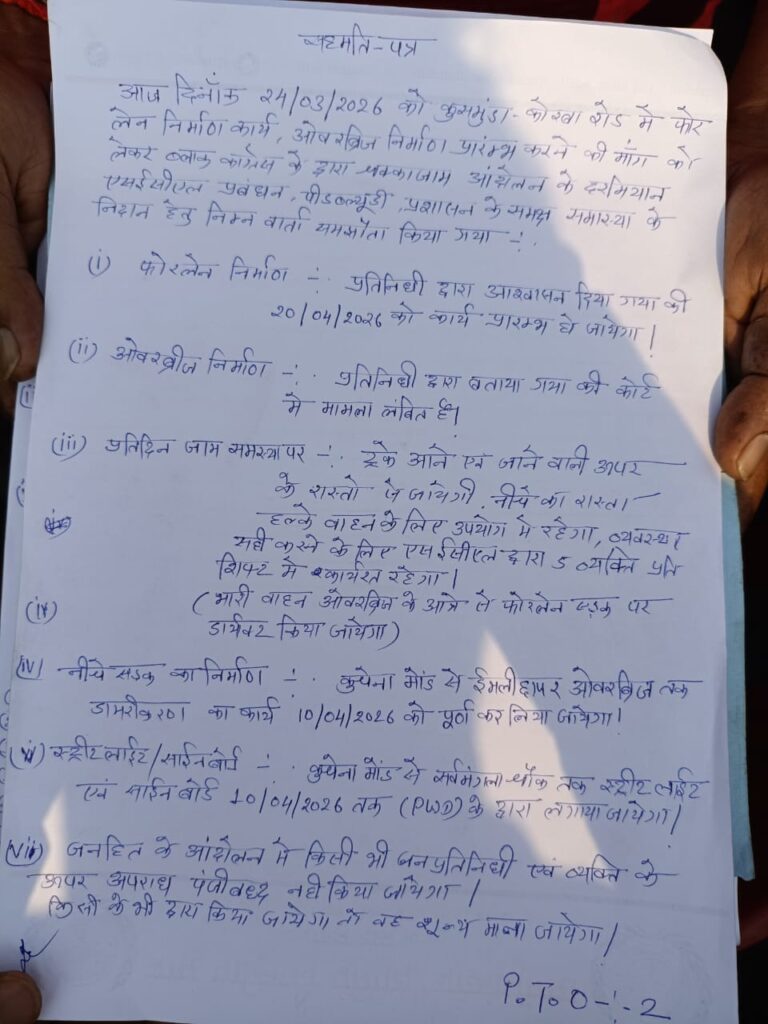 सहमति-पत्र
आज दिनाँक 24/03/2026 को कुसमुंडा-कोरबा रोड में फोर
लेन निर्माण कार्य, ओवरब्रिज निर्माण प्रारंम्भ करने की माँग को
लेकर ब्लाक कांग्रेस के द्वारा चक्काजाम आंदोलन के दरमियान
एसईसीएल प्रबंधन, पीडब्ल्यूडी, प्रशासन के समक्ष समास्या के
निदान हेतु निम्न वार्ता समझौता किया गया -:-
(i) फोरलेन निर्माण -:- प्रतिनिधी द्वारा आश्वासन दिया गया की
20/04/2026 को कार्य प्रारम्भ हो जायेगा।
(ii) ओवरब्रीज निर्माण -:- प्रतिनिधी द्वारा बताया गया की कोर्ट
मे मामला लंबित है।
(iii) प्रतिदिन जाम समस्या पर -:- ट्रके आने एवं जाने वाली ऊपर
के रास्तो से जायेगी, नीचे का रास्ता
हल्के वाहन के लिए उपयोग मे रहेगा, व्यवस्था
सही करने के लिए एसईसीएल द्वारा 5 व्यक्ति प्रति
शिफ्ट में कार्यरत रहेगा।
(iv) (भारी वाहन ओवरब्रिज के आगे से फोरलेन सड़क पर
डार्यवट किया जायेगा)
(iv) नीचे सड़क का निर्माण -:- कुचेना मोंड से ईमलीछापर ओवरब्रिज तक
डामरीकरण का कार्य 10/04/2026 को पूर्ण कर लिया जायेगा।
स्ट्रीट लाईट/साईन बोर्ड -:- कुचेना मोंड से सर्वमंगला चौक तक स्ट्रीट लाईट
एवं साईन बोर्ड 10/04/2026 तक (PWD) के द्वारा लगाया जायेगा।
(vii) जनहित के आंदोलन मे किसी भी जनप्रतिनिधी एवं व्यक्ति के
ऊपर अपराध पंजीवध्द नही किया जायेगा।
किसी के भी द्वारा किया जायेगा तो वह शून्य माना जायेगा।
P.T.O -:- 2